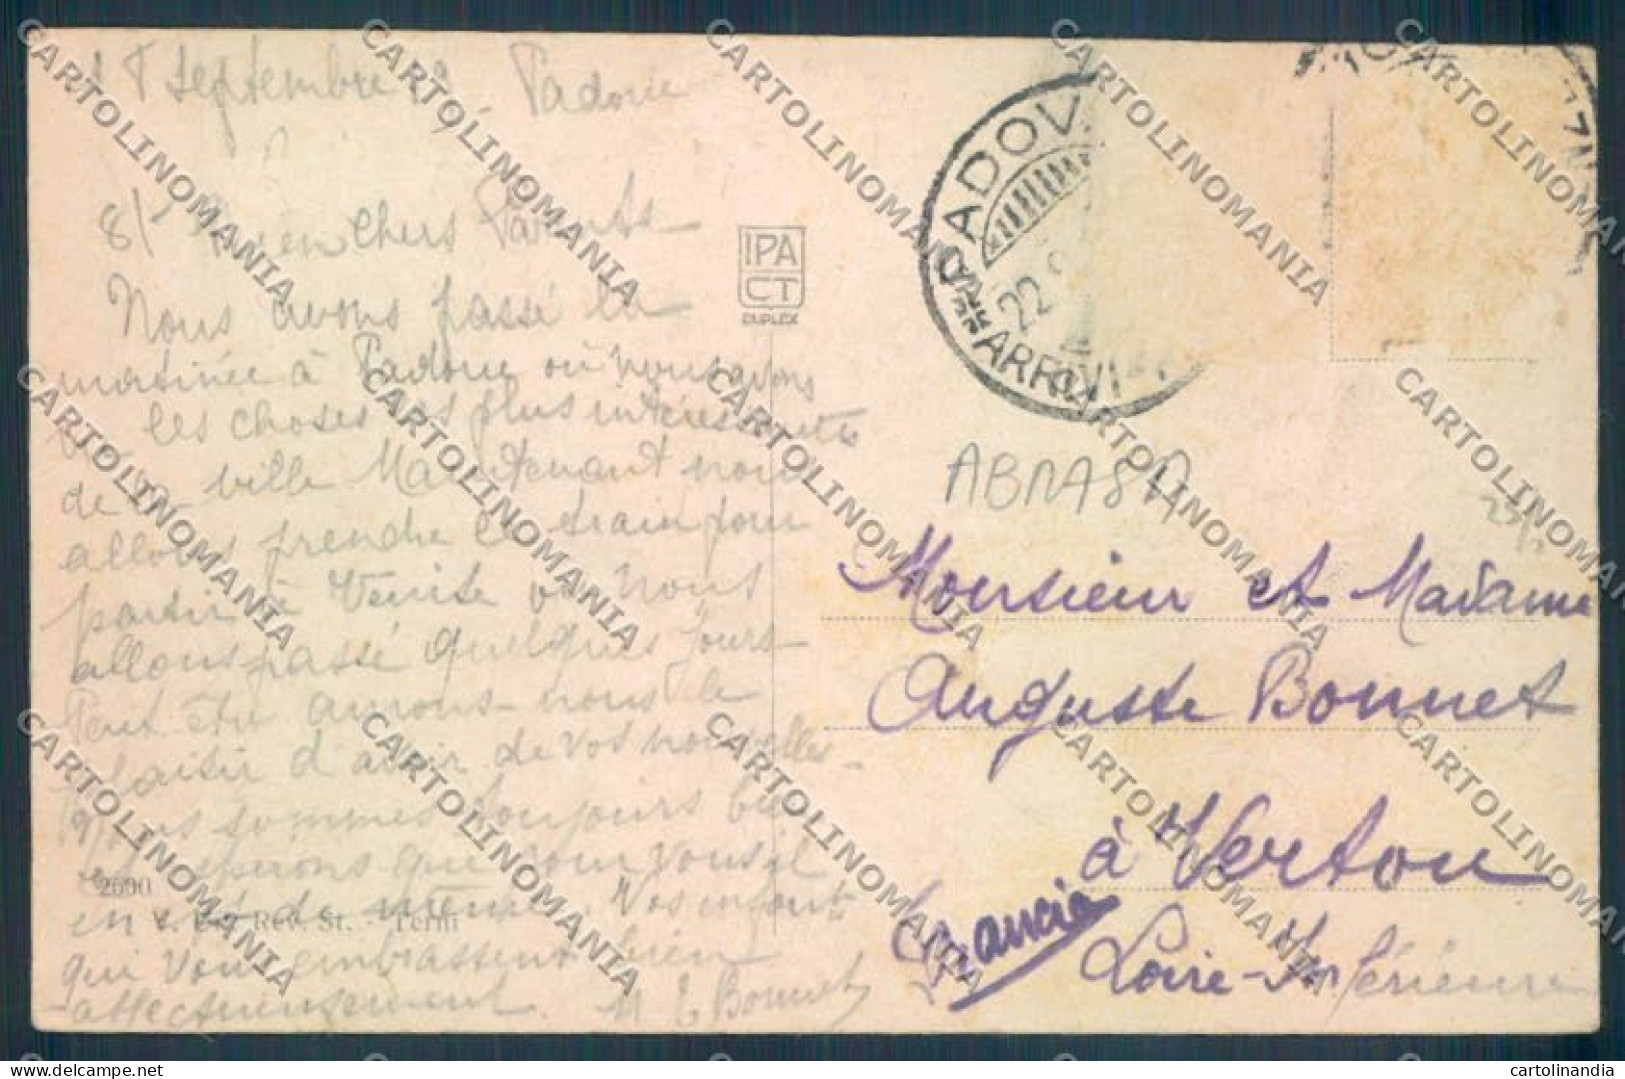 septembre Padoue
Bien chers Parents
Nous avons passé la
matinée à Padoue où nous avons
les choses les plus intéressantes
de la ville Maintenant nous
allons prendre le train pour
partir à Venise où nous
allons passé quelques jours
Peut être aurons-nous le
plaisir d'avoir de vos nouvelles-
Nous sommes toujours
espérons que pour vous il
en est de même. Vos enfants
qui vous embrassent bien
affectueusement. M E Bonnet
2690
Terni
IPA
CT
DUPLEX
PADOV
ARRIVI
22
ABNASA
Monsieur et Madame
Auguste Bonnet
à Vertou
Loire-Inférieure
Francia
CARTOLINOMANIA
cartolinandia